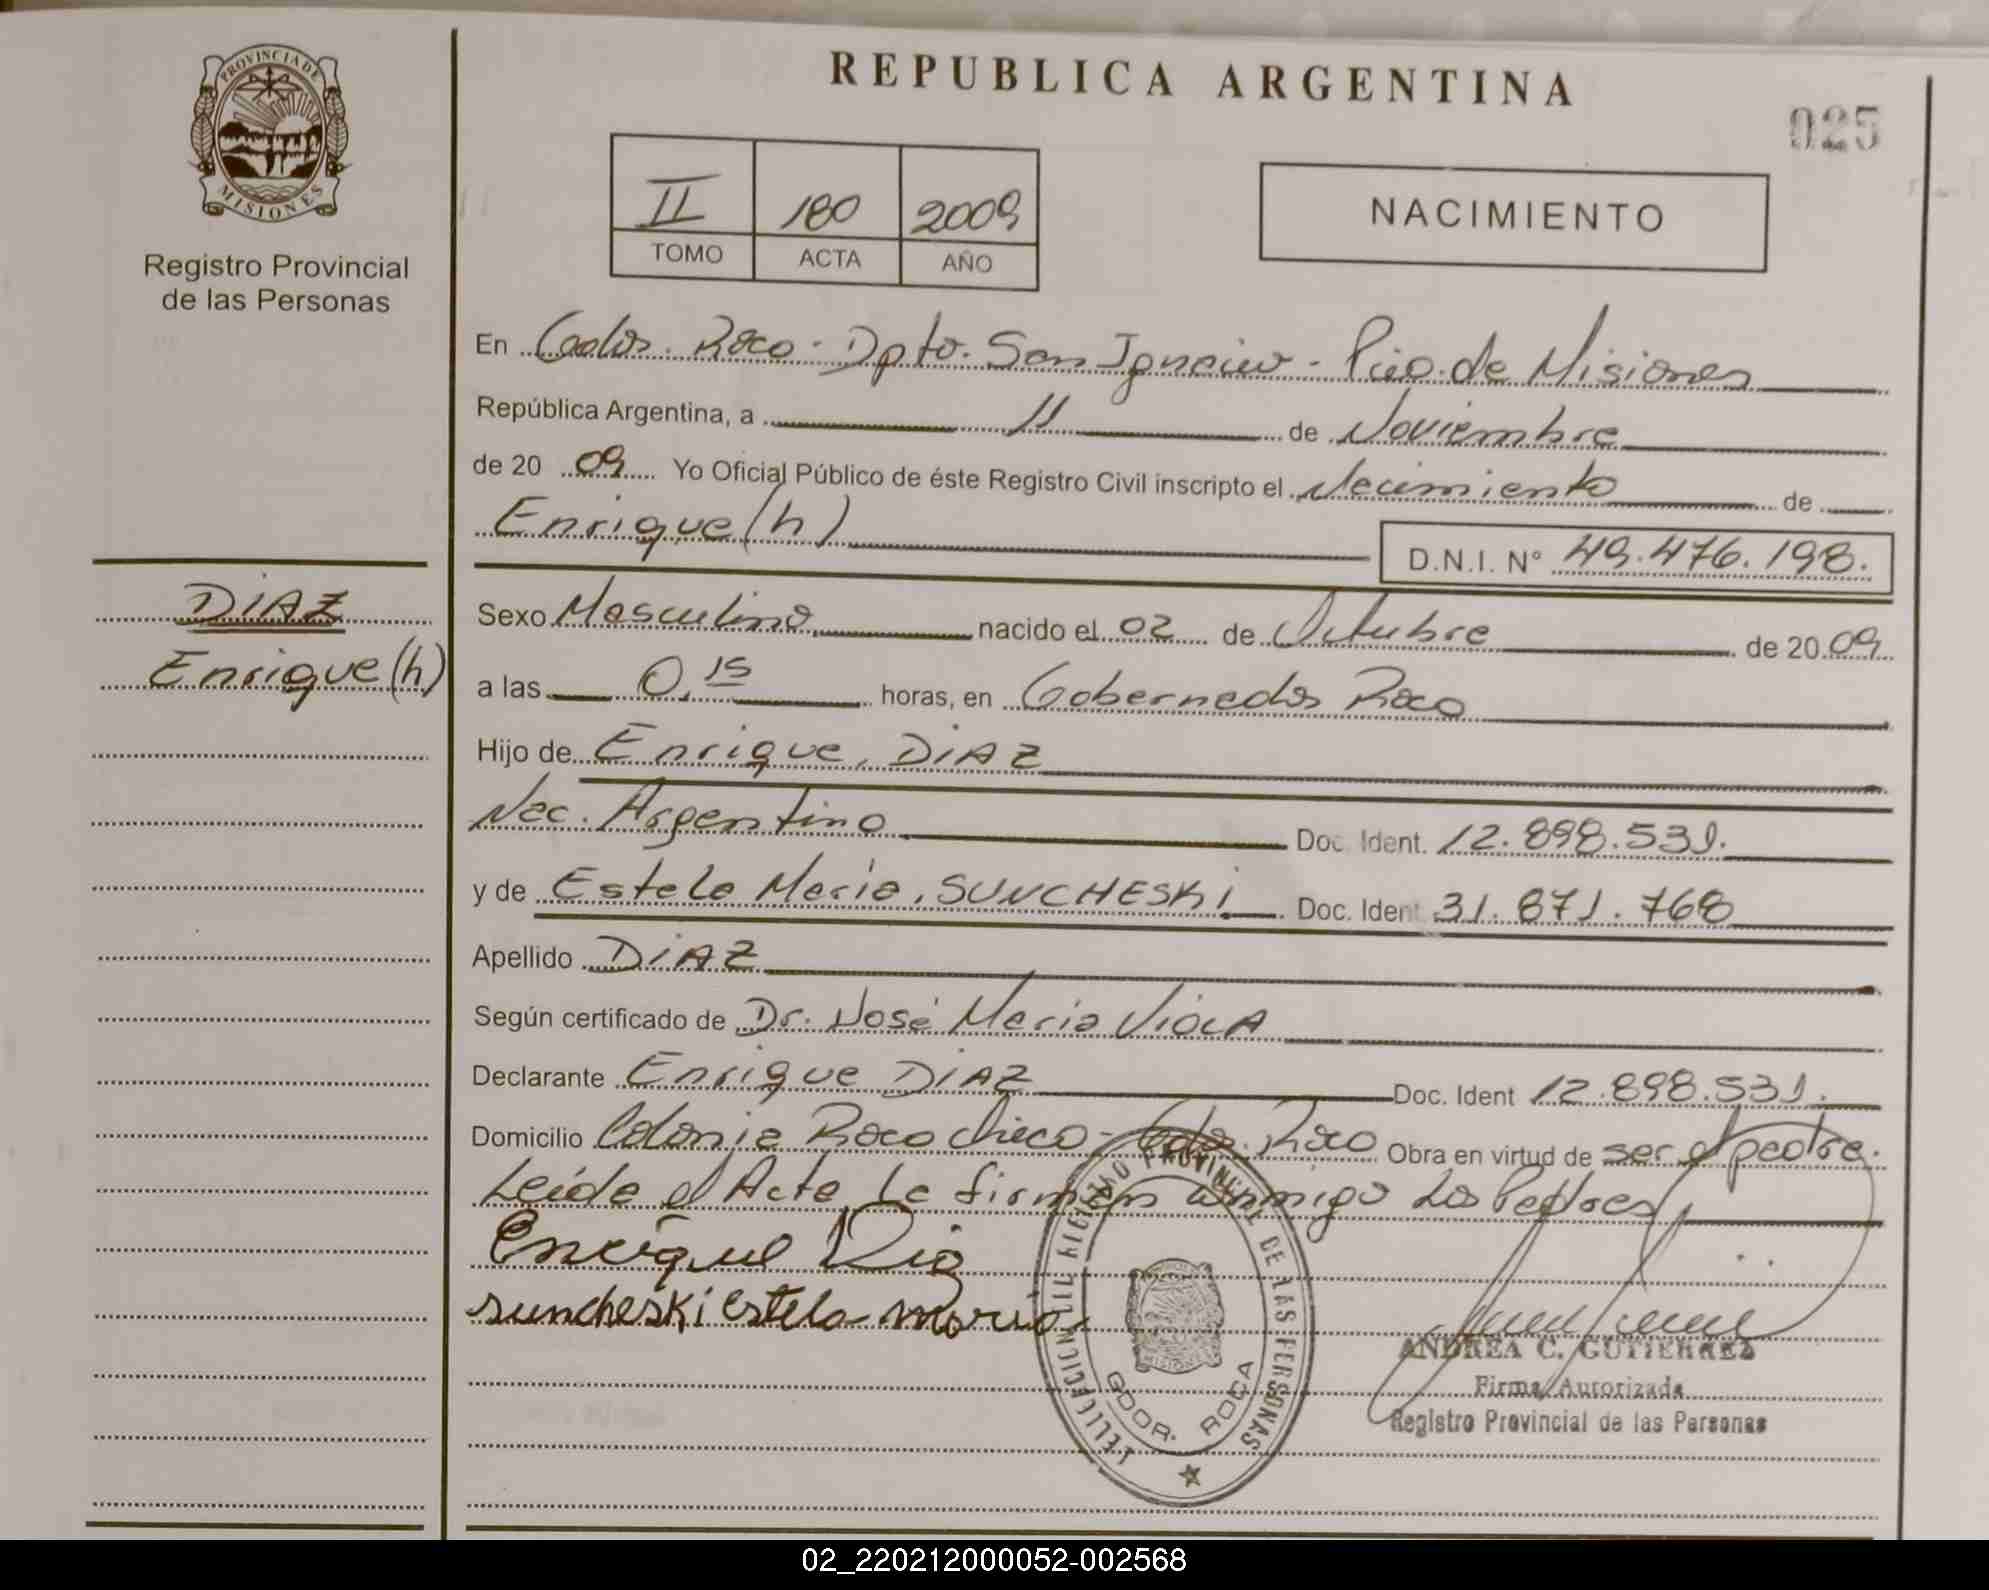 REPUBLICA ARGENTINA
025
PROVINCIA DE
MISIONES
Registro Provincial
de las Personas
II 180 2009
TOMO ACTA AÑO
NACIMIENTO
En Gdor. Roca - Dpto. San Ignacio - Pcia. de Misiones
República Argentina, a 11 de Noviembre
de 2009 Yo Oficial Público de éste Registro Civil inscripto el Nacimiento de
Enrique (h)
D.N.I. Nº 49.476.198.
DIAZ
Enrique (h)
Sexo Masculino nacido el 02 de Octubre de 2009
a las 0,15 horas, en Gobernador Roca
Hijo de Enrique, DIAZ
Nac. Argentino Doc. Ident. 12.898.531.
y de Estela Maria, SUNCHESKI Doc. Ident 31.871.768
Apellido DIAZ
Según certificado de Dr. José Maria VIOLA
Declarante Enrique DIAZ Doc. Ident 12.898.531.
Domicilio Colonia Roca Chica - Gdor. Roca Obra en virtud de ser el padre.
Leída el Acta la firman conmigo los Padres
Enrique Dia
suncheski estela maria
REGISTRO PROVINCIAL DE LAS PERSONAS
GDOR. ROCA
MISIONES
ANDREA C. GUTIERREZ
Firma Autorizada
Registro Provincial de las Personas
02_220212000052-002568